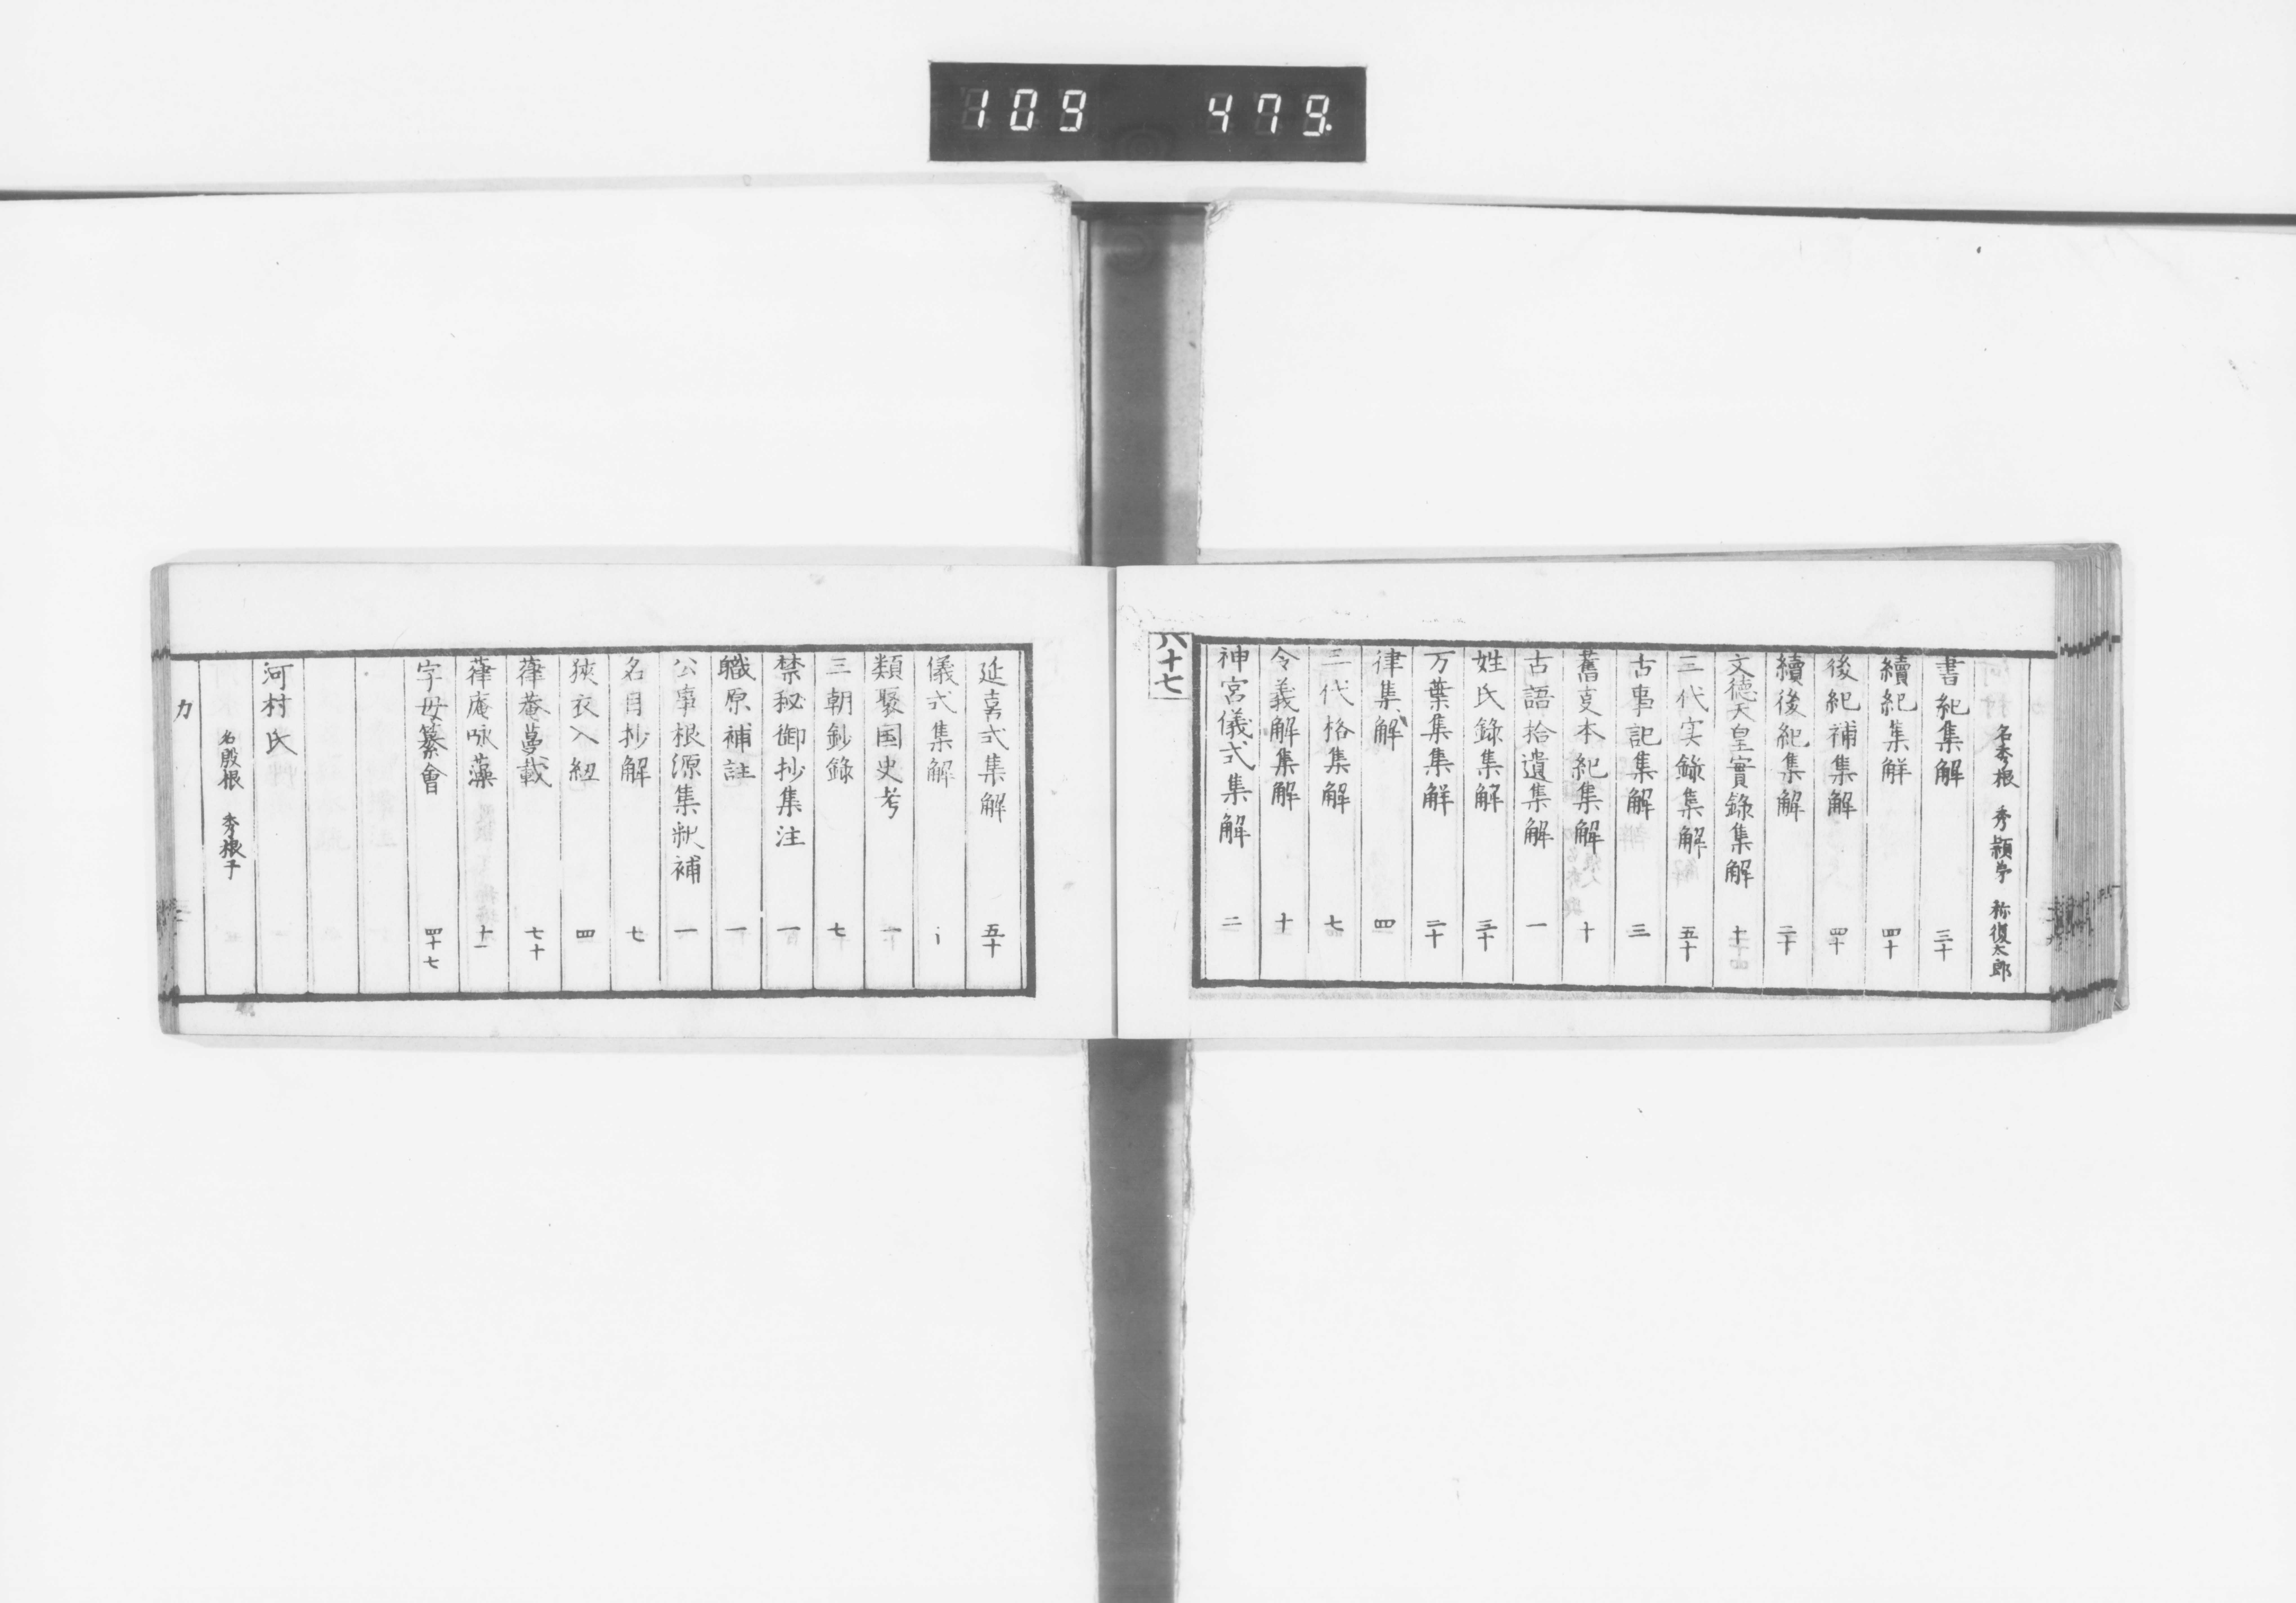 109 479.
名秀根 秀穎学 称復太郎
書紀集解 三十
續紀集解 四十
後紀補集解 四十
續後紀集解 二十
文徳天皇實錄集解 十
三代实錄集解 五十
古事記集解 三
舊夏本紀集解 十
古語拾遺集解 一
姓氏錄集解 三十
万葉集集解 二十
律集解 四
三代格集解 七
令義解集解 十
神宮儀式集解 二
六十七
延喜式集解 五十
儀式集解
類聚国史考 一
三朝鈔錄 七
禁秘御抄集注 一
職原補註 一
公事根源集釈補 一
名目抄解 七
狭衣入紐 四
葎菴夢載 七十
葎庵咏藻 十一
字母纂會 四十七
河村氏
名殷根 秀根子
カ